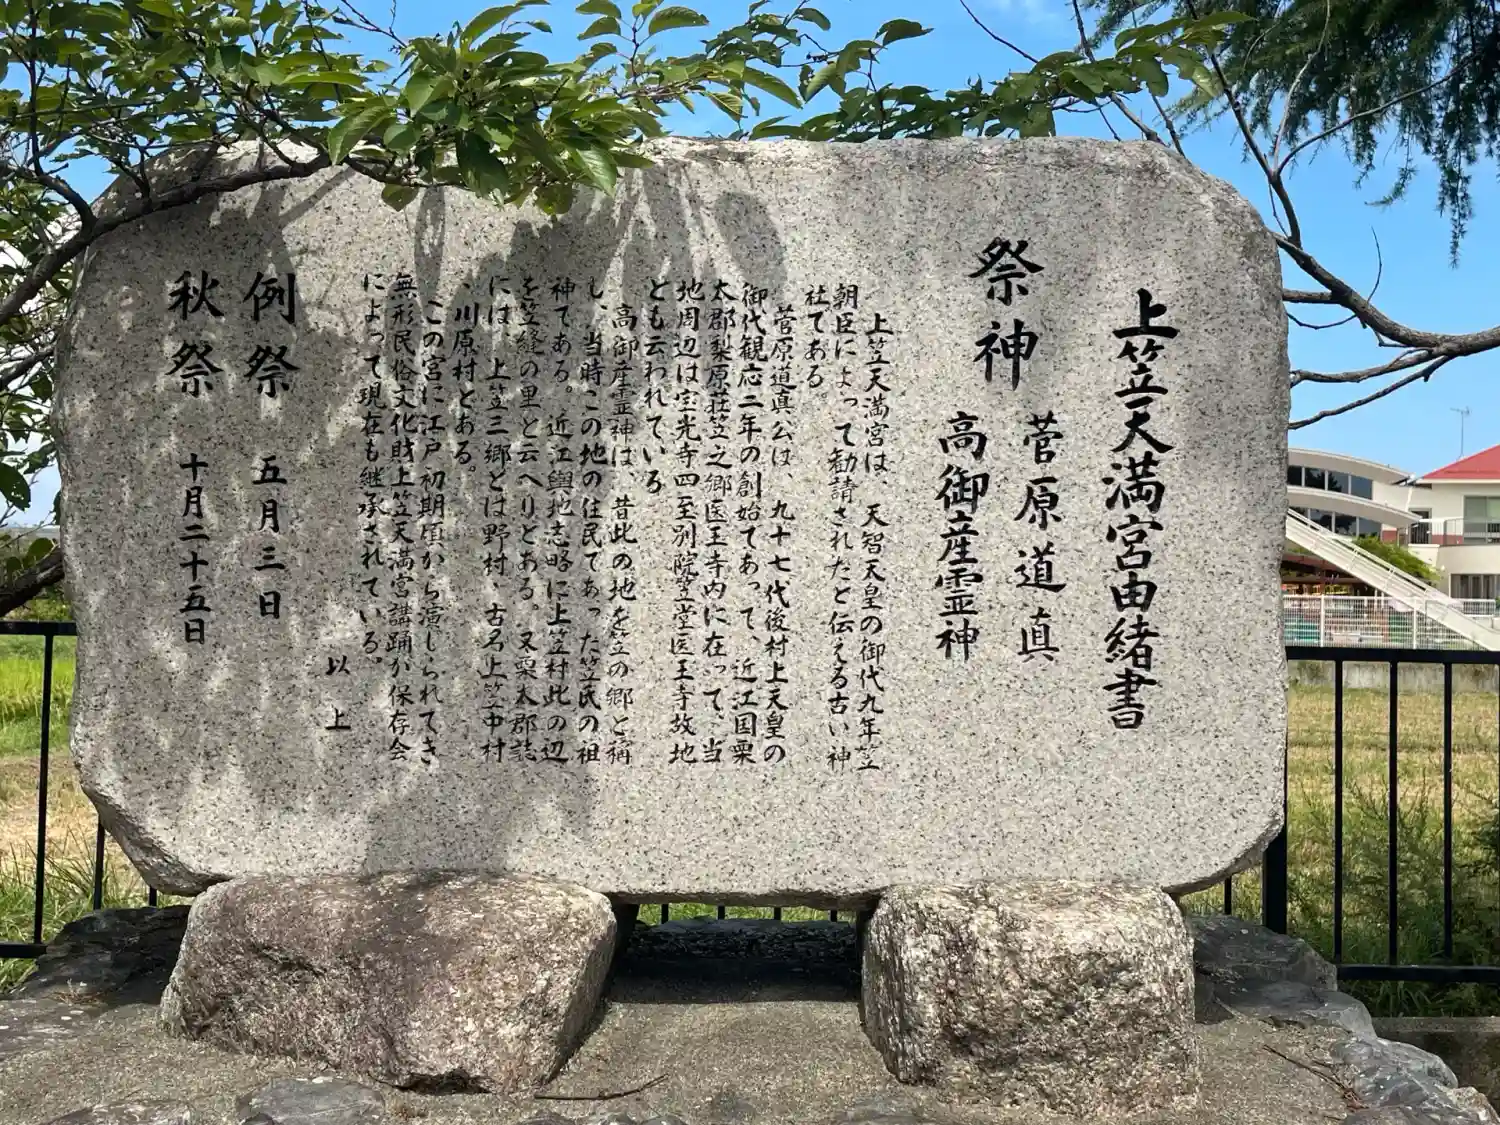 上笠天満宮由緒書
祭神 菅原道真
高御産霊神
上笠天満宮は、天智天皇の御代九年笠
朝臣によって勧請されたと伝える古い神
社である。
菅原道真公は、九十七代後村上天皇の
御代観応二年の創始であって、近江国栗
太郡梨原荘笠之郷医王寺内に在って、当
地周辺は宝光寺四至別院笠堂医王寺故地
とも云われている
高御産霊神は、昔此の地を笠の郷と稱
し、当時この地の住民であった笠氏の祖
神である。近江輿地志略に上笠村此の辺
を笠縫の里と云へりとある。又栗太郡誌
には、上笠三郷とは野村、古名上笠中村
、川原村とある。
この宮に江戸初期頃から演じられてき
無形民俗文化財上笠天満宮講踊が保存会
によって現在も継承されている。
以上
例祭 五月三日
秋祭 十月二十五日